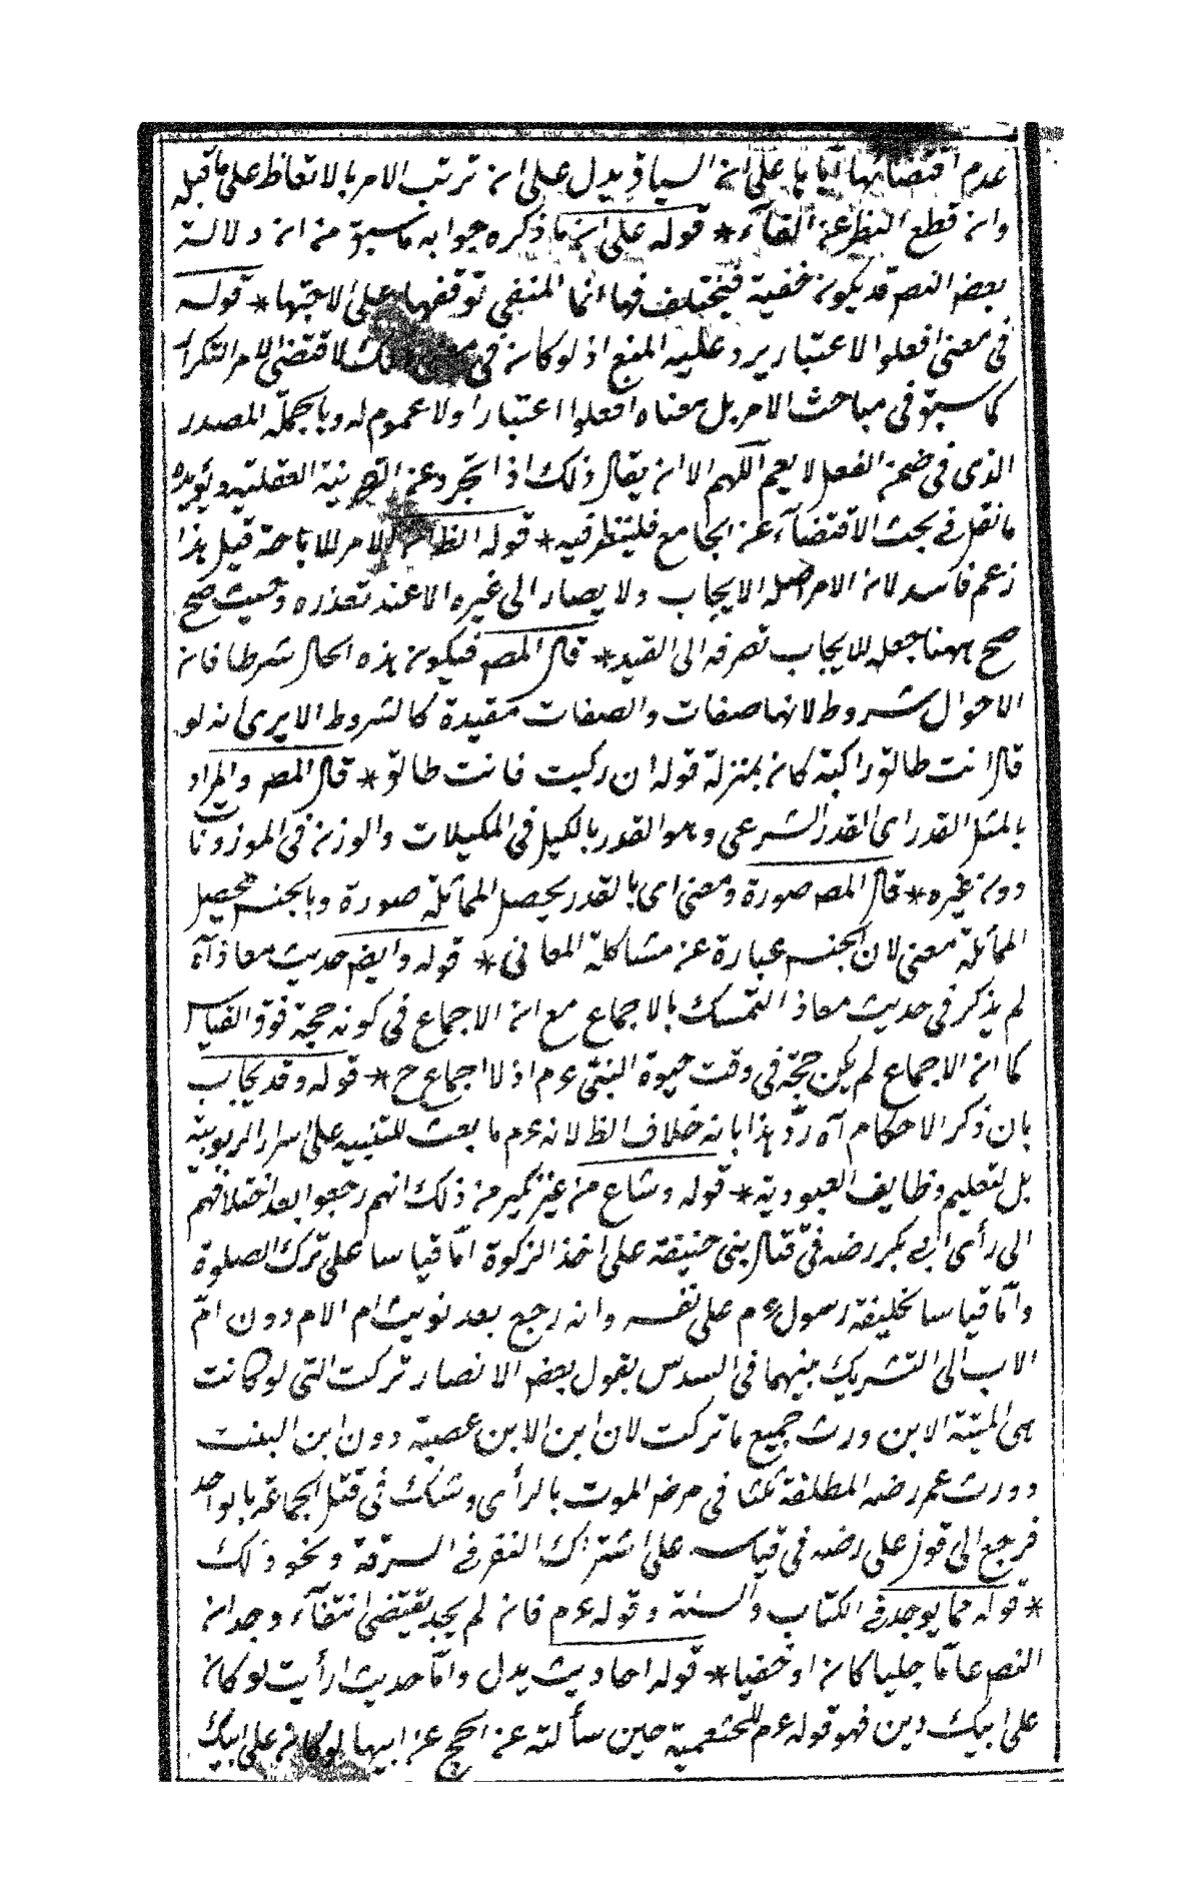 عدم اقتضائها اياها على ان السياق يدل على ان ترتب الامر بالاتعاظ على ما قبله
وان قطع النظر عن الفاء * قوله على ان ما ذكره جوابه ما سبق من ان دلالة
بعض النص قد يكون خفية فيختلف فيها انما المنفى توقفها على الاجتهاد * قوله
فى معنى افعلوا الاعتبار يرد عليه المنع اذ لو كان فى معنى ذلك لاقتضى الامر التكرار
كما سبق فى مباحث الامر بل معناه افعلوا اعتبارا ولا عموم له وبالجملة المصدر
الذى فى ضمن الفعل لا يعم اللهم الا ان يقال ذلك اذا تجرد عن القرينة العقلية ويؤيده
ما نقل فى بحث الاقتضاء عن الجامع فلينظر فيه * قوله الظاهر الامر للاباحة قيل هذا
زعم فاسد لان الامر اصله الايجاب ولا يصار الى غيره الا عند تعذره وحيث صح
صح ههنا جعله للايجاب تصرفه الى القيد * قال المص فيكون هذه الحال شرطا فان
الاحوال شروط لانها صفات والصفات مقيدة كالشروط الا يرى انه لو
قال انت طالق راكبة كان بمنزلة قوله ان ركبت فانت طالق * قال المص والمراد
بالمثل القدر اى القدر الشرعى وهو القدر بالكيل فى المكيلات والوزن فى الموزونات
دون غيره * قال المص صورة ومعنى اى بالقدر يحصل المماثلة صورة وبالجنس يحصل
المماثلة معنى لان الجنس عبارة عن مشاكلة المعانى * قوله وايضا حديث معاذ آه
لم يذكر فى حديث معاذ التمسك بالاجماع مع ان الاجماع فى كونه حجة فوق القياس
كما ان الاجماع لم يكن حجة فى وقت حيوة النبى عم اذ لا اجماع ح * قوله وقد يجاب
بان ذكر الاحكام آه رد هذا بانه خلاف الظ لانه عم ما بعث للتنبيه على اسرار الربوبية
بل لتعليم وظايف العبودية * قوله وشاع من غير نكير من ذلك انهم رجعوا بعد اختلافهم
الى رأى ابى بكر رضه فى قتال بنى حنيفة على اخذ الزكوة اما قياسا على ترك الصلوة
واما قياسا لخليفة رسول عم على نفسه وانه رجع بعد توريث ام الام دون ام
الاب الى التشريك بينهما فى السدس بقول بعض الانصار تركت التى لو كانت
هى الميتة الابن ورث جميع ما تركت لان ابن الابن عصبة دون ابن البنت
وورث عمر رضه المطلقة ثلثا فى مرض الموت بالرأى وشك فى قتل الجماعة بالواحد
فرجع الى قول على رضه فى قياسه على اشتراك النفر فى السرقة ونحو ذلك
* قوله مما يوجد فى الكتاب والسنة وقوله عم فان لم يجد يقتضى انتفاء وجدان
النص عاما جليا كان او خفيا * قوله احاديث يدل واما حديث ارأيت لو كان
على ابيك دين فهو قوله عم للخثعمية حين سألته عن الحج عن ابيها لو كان على ابيك